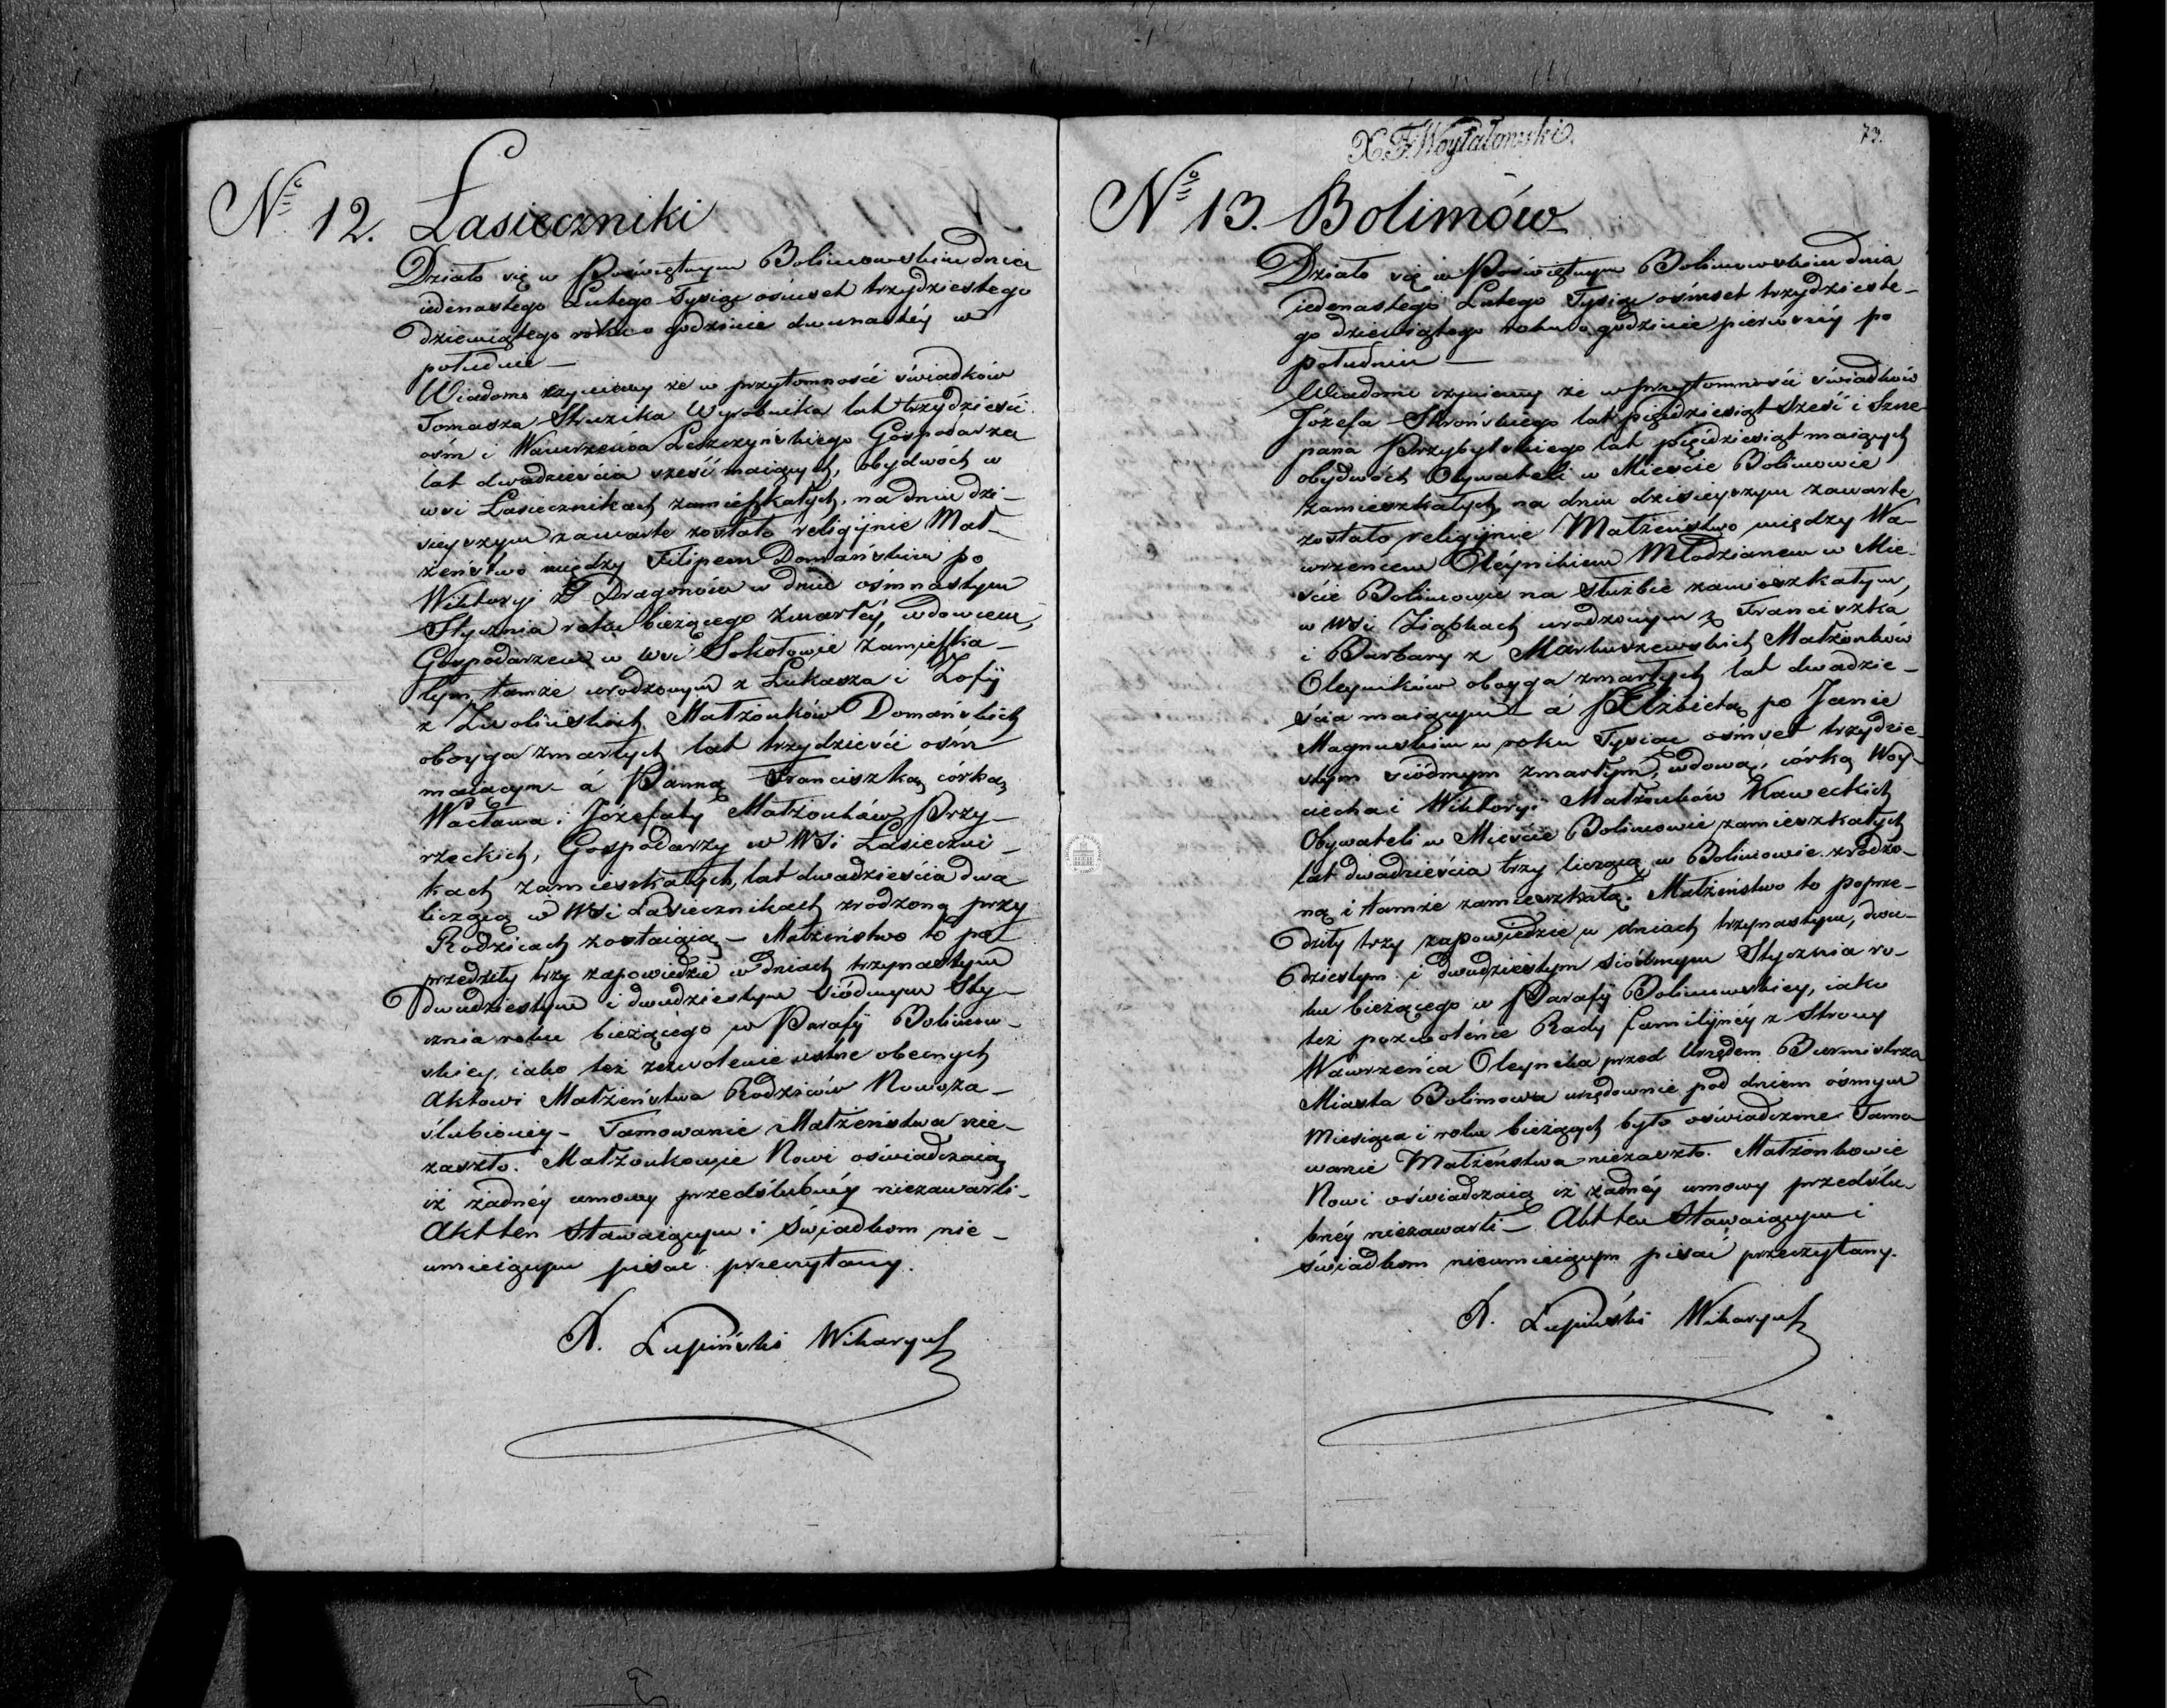 No 12. Łasieczniki
Działo się w Poświętnym Bolimowskim dnia
iedenastego Lutego Tysiąc ośmset trzydziestego
dziewiątego roku o godzinie dwunastéy w
południe —
Wiadomo czyniemy że w przytomności świadków
Tomasza Struzika Wyrobnika lat trzydzieści
ośm i Wawrzeńca Leszczyńskiego Gospodarza
lat dwadzieścia sześć maiących, obydwoch w
wsi Łasiecznikach zamieszkałych, na dniu dzi-
sieyszym zawarte zostało religijnie Mał-
żeństwo między Filipem Domańskim po
Wiktoryi z Dragonów w dniu ośmnastym
Stycznia roku bieżącego zmarłéy, wdowcem,
Gospodarzem w wsi Sokołowie zamieszka-
łym, tamże urodzonym z Łukasza i Zofij
z Zwolińskich Małżonków Domańskich
oboyga zmarłych lat trzydzieści ośm
maiącym — á Panną Franciszką córką
Wacława i Józefaty Małżonków Przy-
rzeckich, Gospodarzy w Wsi Łasieczni-
kach zamieszkałych, lat dwadzieścia dwa
liczącą w Wsi Łasiecznikach zrodzoną przy
Rodzicach zostaiącą — Małżeństwo to po-
przedziły trzy zapowiedzie w dniach trzynastym
dwudziestym i dwudziestym siódmym Sty-
cznia roku bieżącego w Parafij Bolimow-
skiey, iako też zezwolenie ustne obecnych
Aktowi Małżeństwa Rodziców Nowoza-
ślubioney — Tamowanie Małżeństwa nie-
zaszło. Małżonkowie Nowi oświadczaią
iż żadnéy umowy przedślubnéy niezawarli —
Akt ten Stawaiącym i Świadkom nie-
umieiącym pisać przeczytany.
Lupiński Wikaryusz
X. F. Woytalowski.
73.
No 13. Bolimów
Działo się w Poświętnym Bolimowskim dnia
iedenastego Lutego Tysiąc ośmset trzydzieste-
go dziewiątego roku o godzinie pierwszéy po
południu —
Wiadomo czyniemy że w przytomności świadków
Józefa Skrońskiego lat pięćdziesiąt sześć i Szcze-
pana Przybylskiego lat pięćdziesiąt maiących
obydwóch Obywateli w Mieście Bolimowie
zamieszkałych, na dniu dzisieyszym zawarte
zostało religijnie Małżeństwo między Wa-
wrzeńcem Oleynikiem Młodzianem w Mie-
ście Bolimowie na służbie zamieszkałym,
w wsi Ziąbkach urodzonym z Franciszka
i Barbary z Markuszewskich Małżonków
Oleyników oboyga zmarłych lat dwadzie-
ścia maiącym — á Elżbietą po Janie
Magnuskim w roku Tysiąc ośmset trzydzie-
stym siódmym zmarłym, wdową, córką Woy-
ciecha i Wiktoryi Małżonków Kaweckich
Obywateli w Mieście Bolimowie zamieszkałych
lat dwadzieścia trzy liczącą w Bolimowie zrodzo-
ną i tamże zamieszkałą. Małżeństwo to poprze-
dziły trzy zapowiedzie w dniach trzynastym, dwu-
dziestym i dwudziestym siódmym Stycznia ro-
ku bieżącego w Parafij Bolimowskiey, iako
też pozwolenie Rady familijnéy z Strony
Wawrzeńca Oleynika przed Urzędem Burmistrza
Miasta Bolimowa urzędownie pod dniem ośmym
Miesiąca i roku bieżących było oświadczone. Tamo-
wanie Małżeństwa niezaszło. Małżonkowie
Nowi oświadczaią iż żadnéy umowy przedślu-
bnéy niezawarli — Akt ten Stawaiącym i
świadkom nieumieiącym pisać przeczytany.
Lupiński Wikaryusz